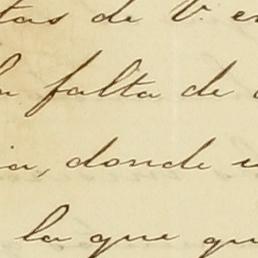 tas de V. e
la falta de
ia, donde u
la que qu